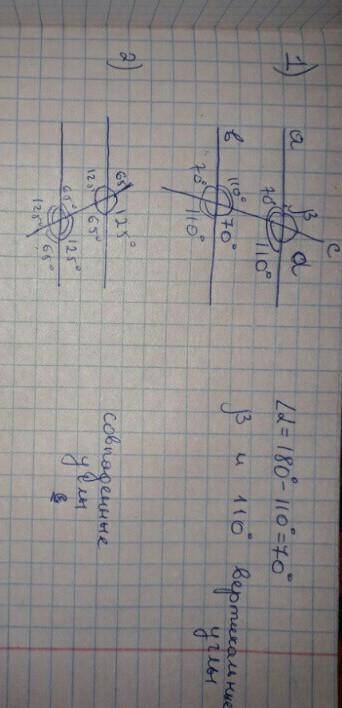 1)
a
β
c
70°
d
110°
в
110°
70°
70°
110°
∠α = 180° - 110° = 70°
β и 110° вертикальные
углы
2)
65°
125°
125°
65°
65°
125°
125°
65°
совпаденные
углы